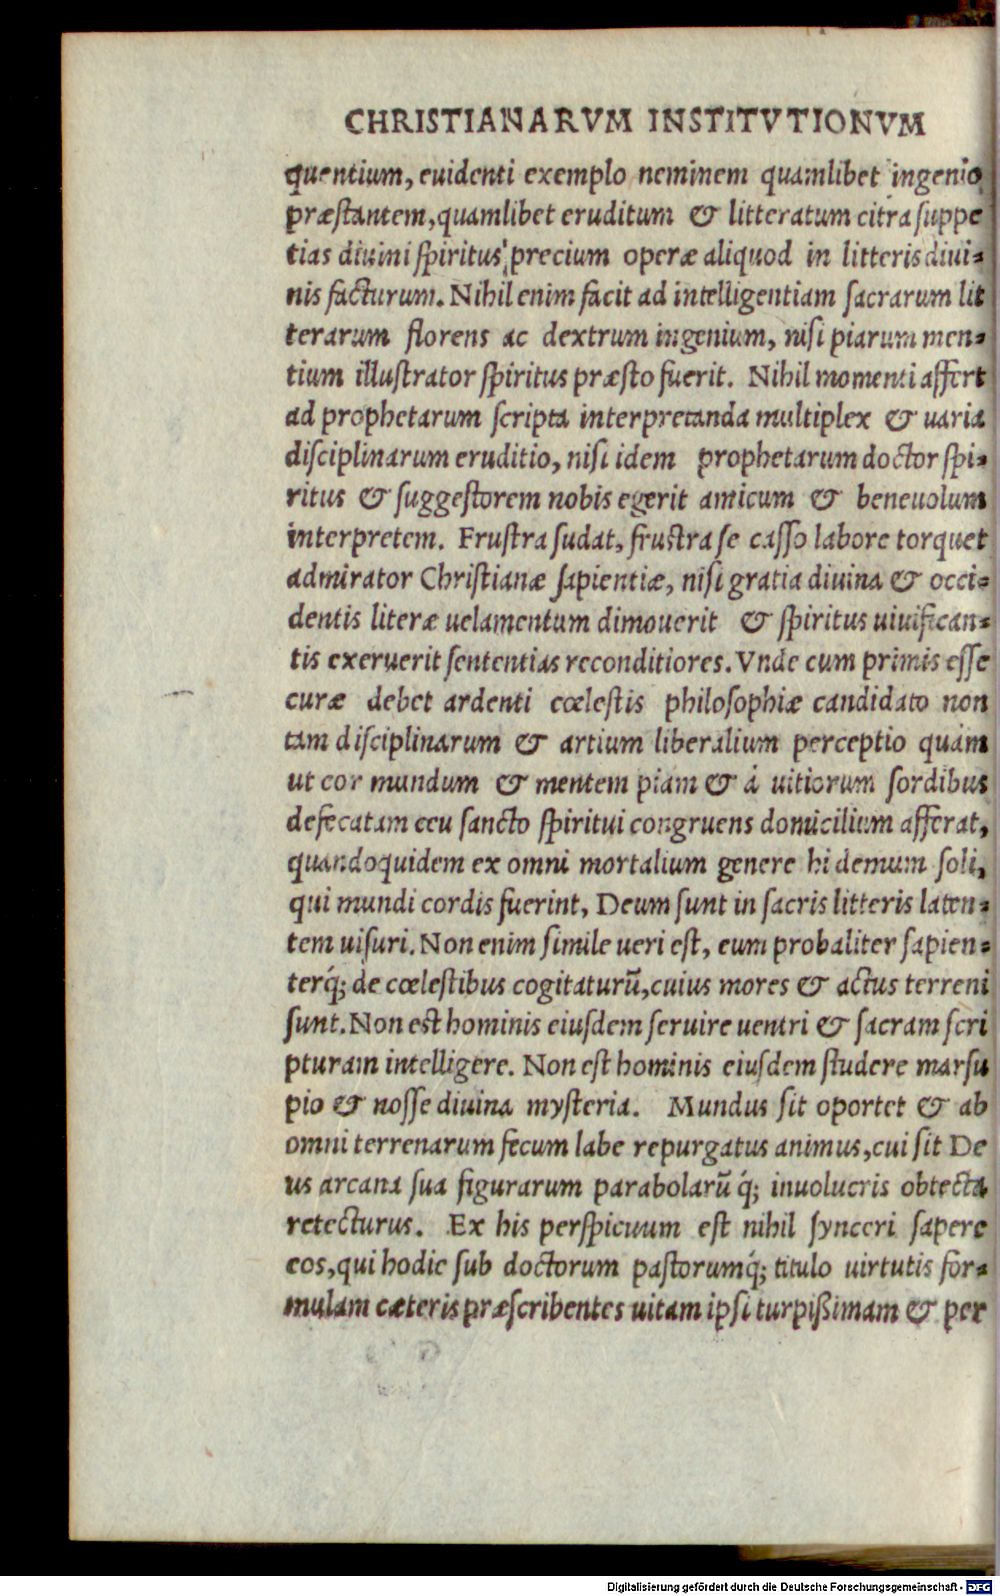 CHRISTIANARVM INSTITVTIONVM
quentium, euidenti exemplo neminem quamlibet ingenio
præstantem, quamlibet eruditum & litteratum citra suppe
tias diuini spiritus, precium operæ aliquod in litteris diui-
nis facturum. Nihil enim facit ad intelligentiam sacrarum lit
terarum florens ac dextrum ingenium, nisi piarum men-
tium illustrator spiritus præsto fuerit. Nihil momenti affert
ad prophetarum scripta interpretanda multiplex & uaria
disciplinarum eruditio, nisi idem prophetarum doctor spi-
ritus & suggestorem nobis egerit amicum & beneuolum
interpretem. Frustra sudat, frustra se casso labore torquet
admirator Christianæ sapientiæ, nisi gratia diuina & occi-
dentis literæ uelamentum dimouerit & spiritus uiuifican-
tis exeruerit sententias reconditiores. Vnde cum primis esse
curæ debet ardenti cœlestis philosophiæ candidato non
tam disciplinarum & artium liberalium perceptio quàm
ut cor mundum & mentem piam & à uitiorum sordibus
defecatam ceu sancto spiritui congruens domicilium afferat,
quandoquidem ex omni mortalium genere hi demum soli,
qui mundi cordis fuerint, Deum sunt in sacris litteris laten-
tem uisuri. Non enim simile ueri est, eum probaliter sapien-
terq́; de cœlestibus cogitaturũ, cuius mores & actus terreni
sunt. Non est hominis eiusdem seruire uentri & sacram scri
pturam intelligere. Non est hominis eiusdem studere marsu
pio & nosse diuina mysteria. Mundus sit oportet & ab
omni terrenarum fecum labe repurgatus animus, cui sit De
us arcana sua figurarum parabolarũ q́; inuolucris obtecta
retecturus. Ex his perspicuum est nihil synceri sapere
eos, qui hodie sub doctorum pastorumq́; titulo uirtutis for-
mulam cæteris præscribentes uitam ipsi turpißimam & per
Digitalisierung gefördert durch die Deutsche Forschungsgemeinschaft - DFG